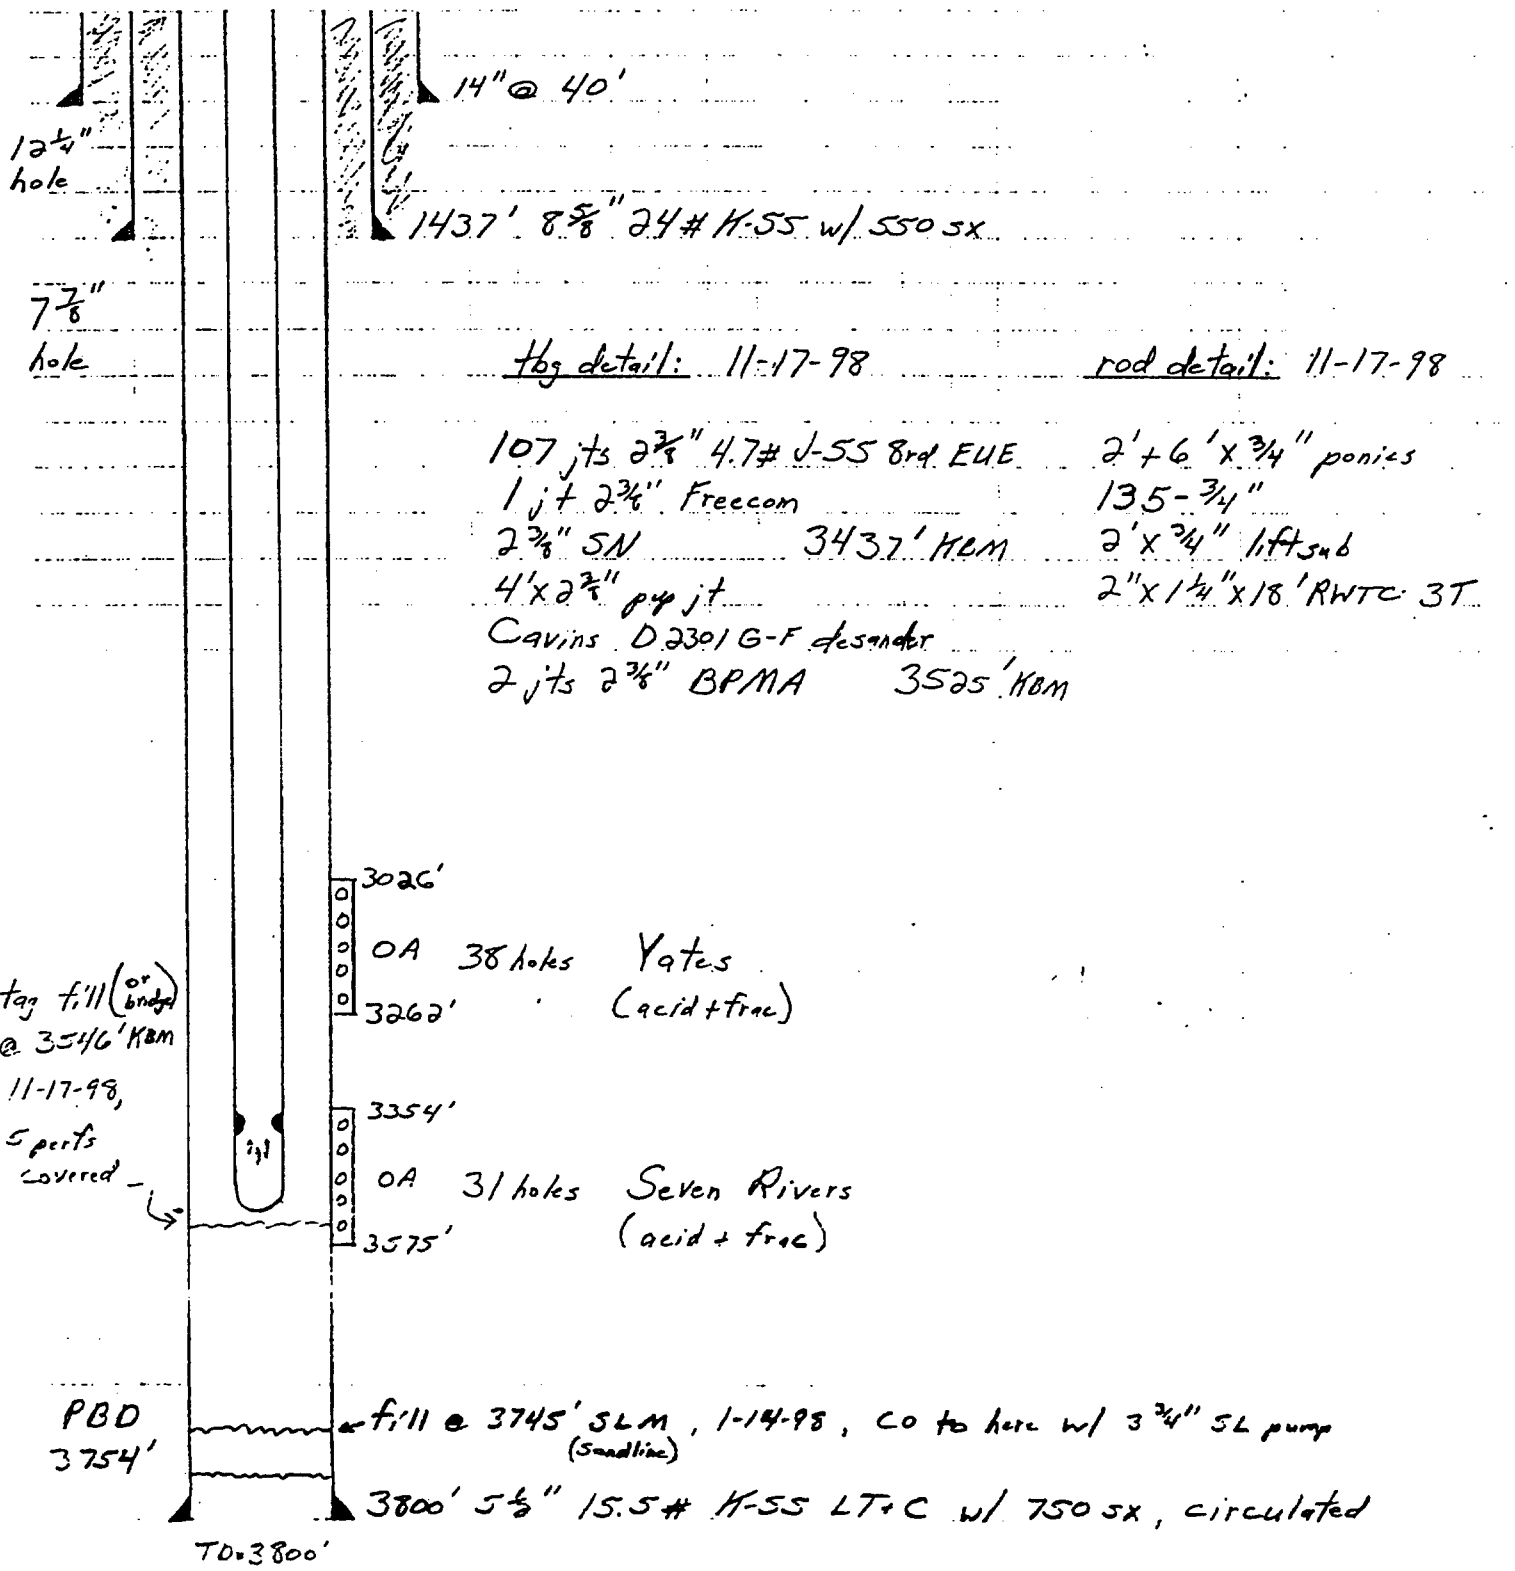 14" @ 40'
12 1/4"
hole
1437' 8 5/8" 24# K-55 w/ 550 sx
7 7/8"
hole
tbg detail: 11-17-98
107 jts 2 3/8" 4.7# J-55 8rd EUE
1 jt 2 3/8" Freecom
2 3/8" SN 3437' KBM
4' x 2 3/8" pup jt
Cavins D2301 G-F desander
2 jts 2 3/8" BPMA 3525' KBM
rod detail: 11-17-98
2' + 6' x 3/4" ponies
135 - 3/4"
2' x 3/4" lift sub
2" x 1 1/4" x 18' RWTC 3T
3026'
OA 38 holes Yates
(acid + frac)
3262'
tag fill (or bridge)
@ 3546' KBM
11-17-98,
5 perfs
covered
3354'
OA 31 holes Seven Rivers
(acid + frac)
3575'
PBD
3754'
fill @ 3745' SLM, 1-14-98, CO to here w/ 3 3/4" SL pump
(sandline)
3800' 5 1/2" 15.5# K-55 LT+C w/ 750 sx, circulated
TD = 3800'